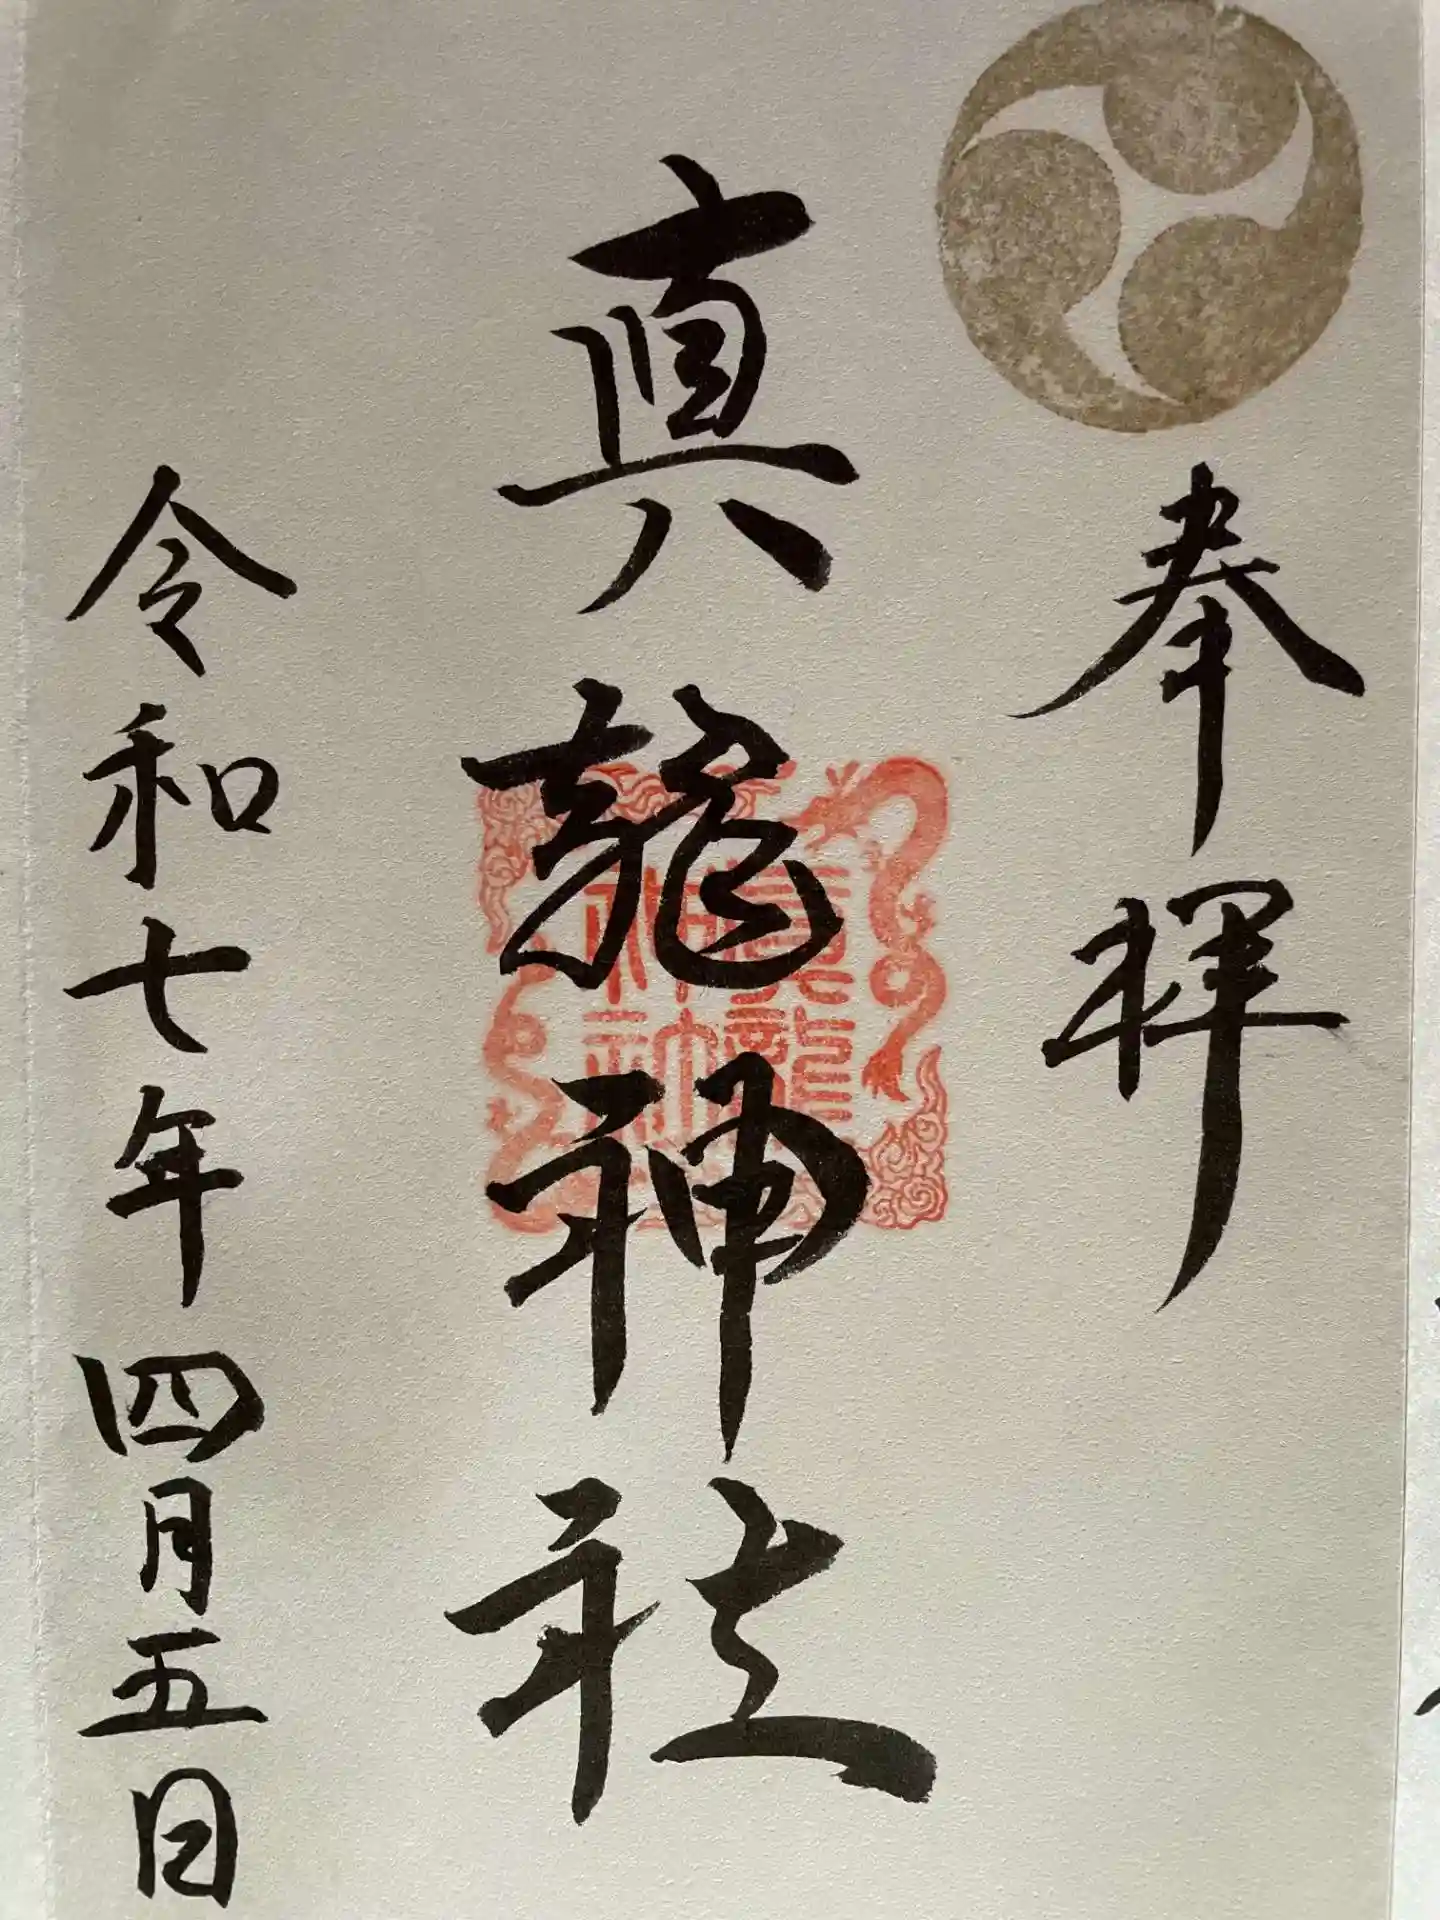 奉拝
真龍神社
真龍神社
令和七年四月五日